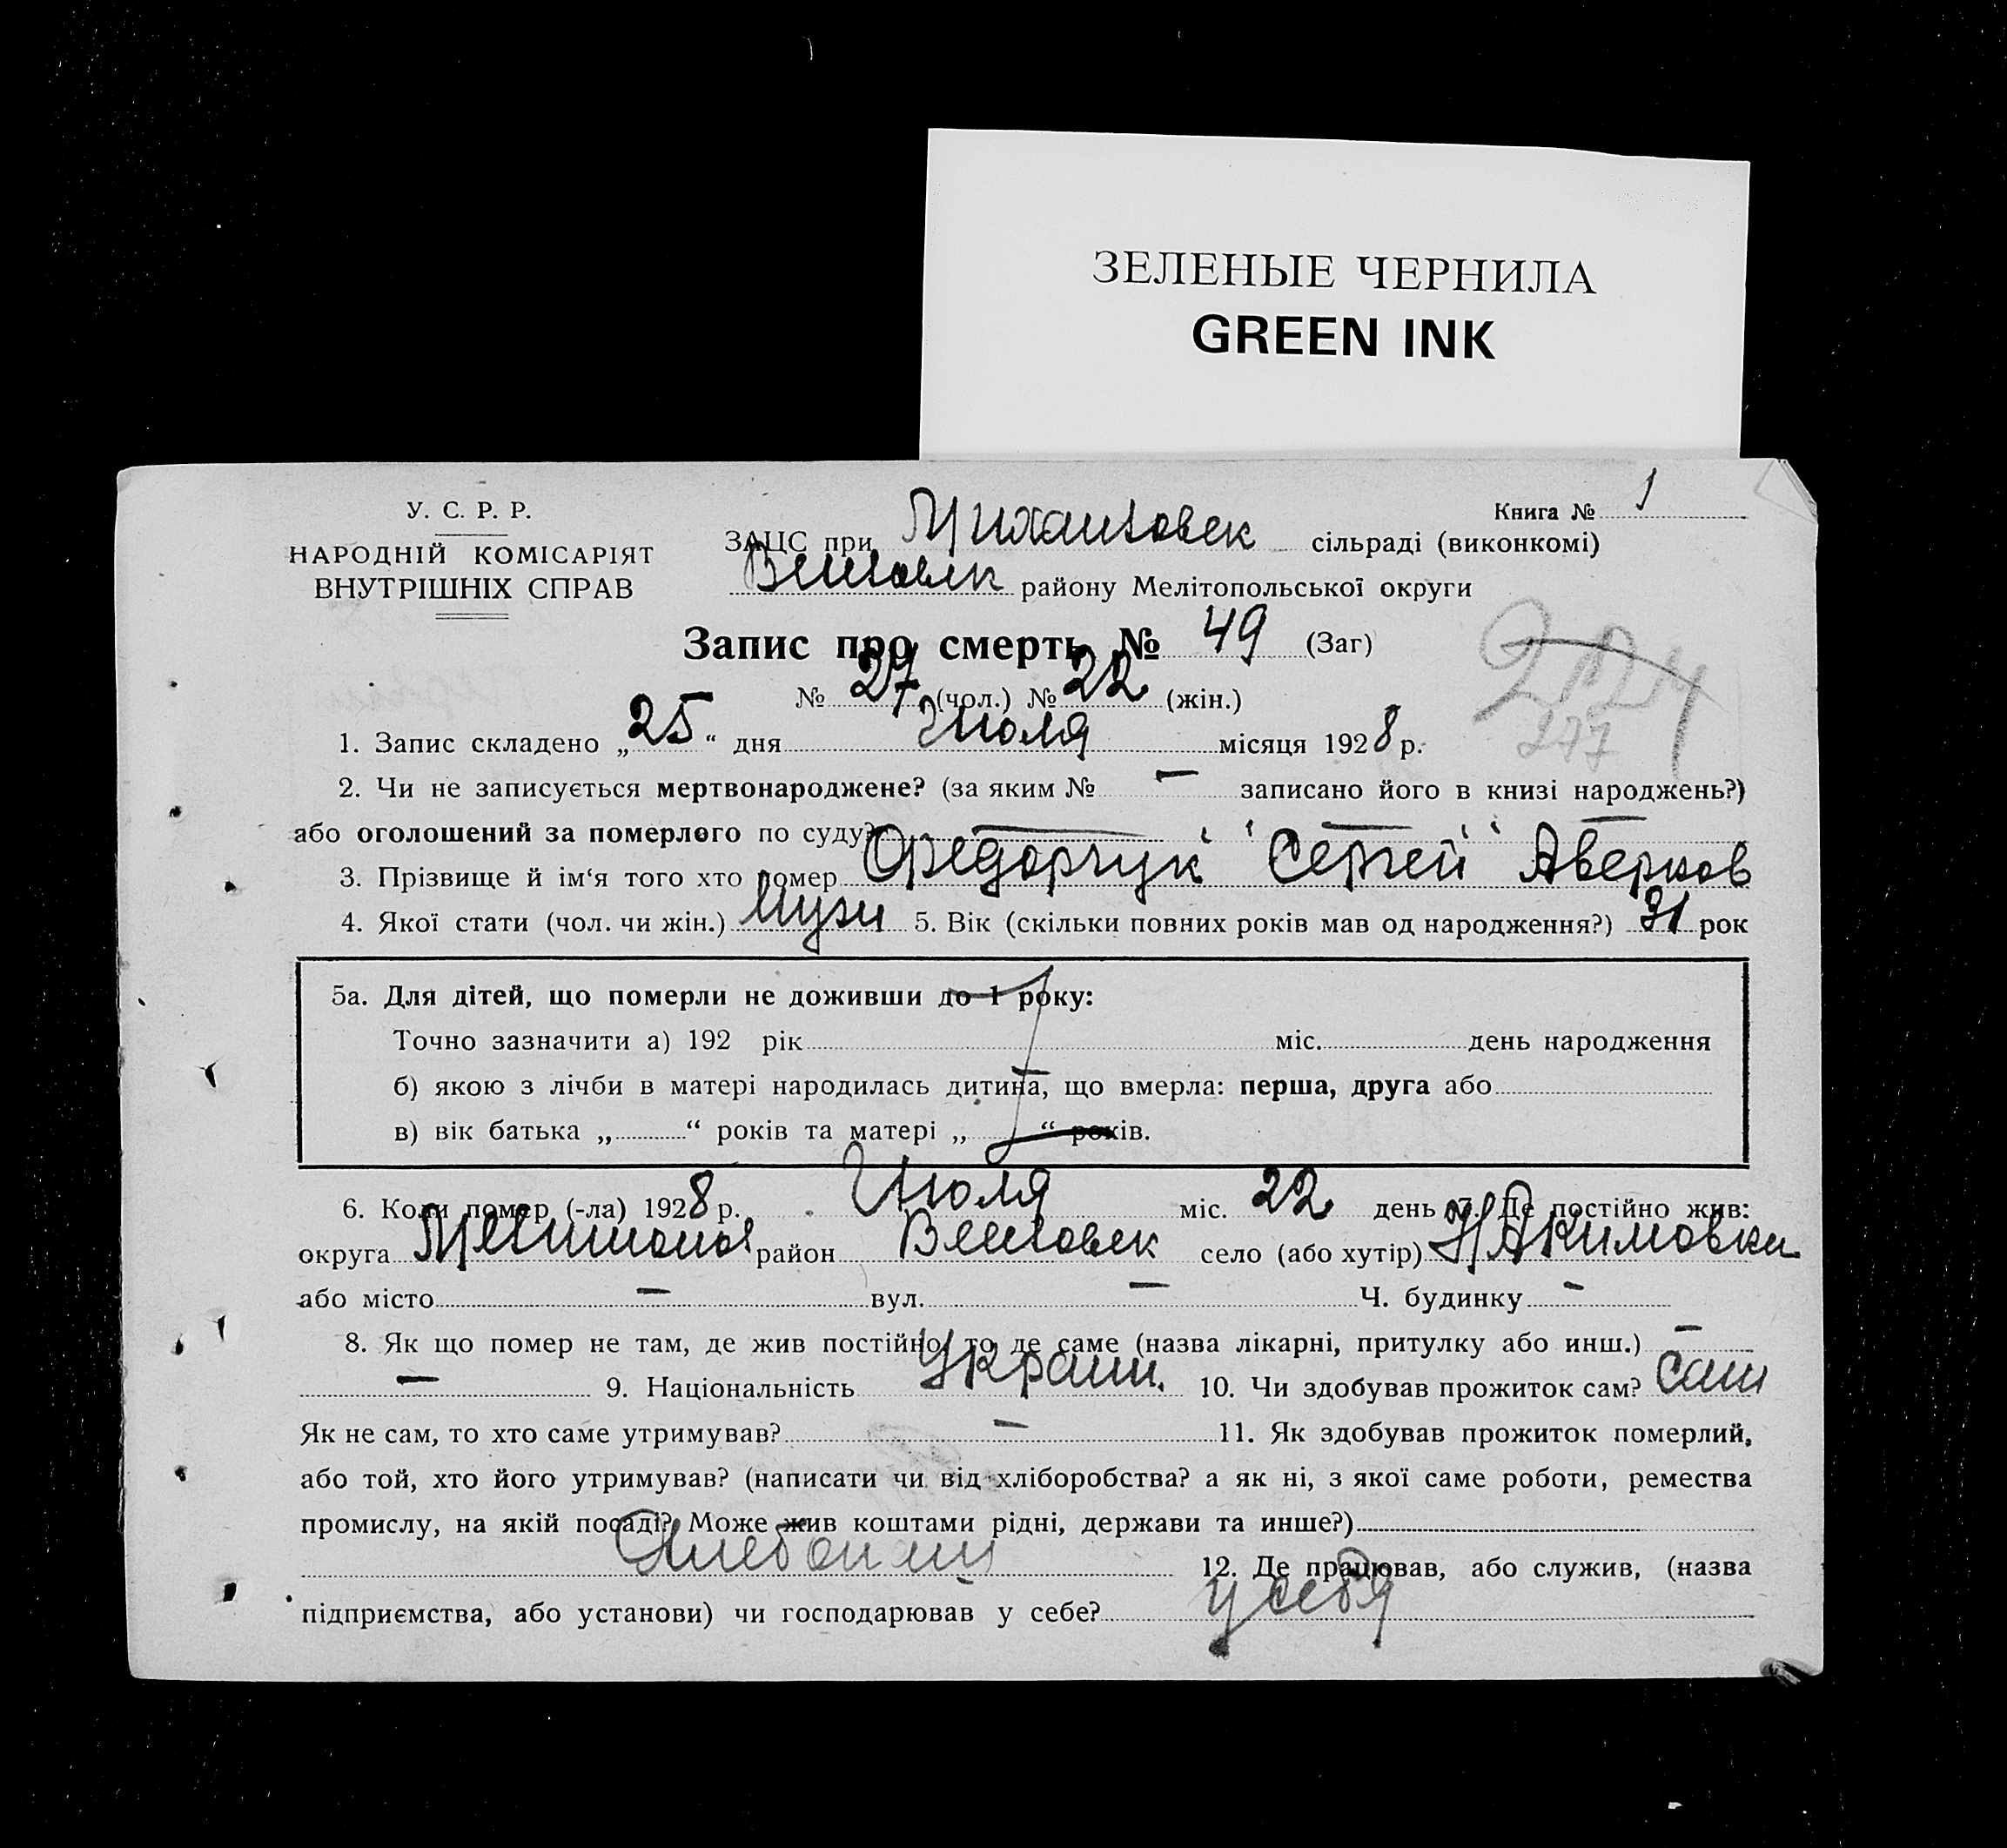 ЗЕЛЕНЫЕ ЧЕРНИЛА
GREEN INK
У. С. Р. Р.
НАРОДНІЙ КОМІСАРІЯТ
ВНУТРІШНІХ СПРАВ
Книга № 1
ЗАЦС при Михайловск сільраді (виконкомі)
району Мелітопольської округи
Запис про смерть № 49 (Заг)
№ 27 (чол.) № 22 (жін.)
277
1. Запис складено „25“ дня Июля місяця 1928 р.
2. Чи не записується мертвонароджене? (за яким № — записано його в книзі народжень?)
або оголошений за померлого по суду? — — —
3. Прізвище й ім‘я того хто помер Федорчук Сергей Аверков
4. Якої стати (чол. чи жін.) Муж 5. Вік (скільки повних років мав од народження?) 31 рок
5а. Для дітей, що померли не доживши до 1 року:
Точно зазначити а) 192 рік міс. день народження
б) якою з лічби в матері народилась дитина, що вмерла: перша, друга або
в) вік батька „ “ років та матері „ “ років.
6. Коли помер (-ла) 1928 р. Июля міс. 22 день 7. Де постійно жив:
округа Мелитопол район село (або хутір) Н Акимовка
або місто — вул. — Ч. будинку —
8. Як що помер не там, де жив постійно, то де саме (назва лікарні, притулку або инш.) —
— 9. Національність Украин. 10. Чи здобував прожиток сам? Сам
Як не сам, то хто саме утримував? — 11. Як здобував прожиток померлий,
або той, хто його утримував? (написати чи від хліборобства? а як ні, з якої саме роботи, ремества
промислу, на якій посаді? Може жив коштами рідні, держави та инше?)
12. Де працював, або служив, (назва
підприємства, або установи) чи господарював у себе? у себя